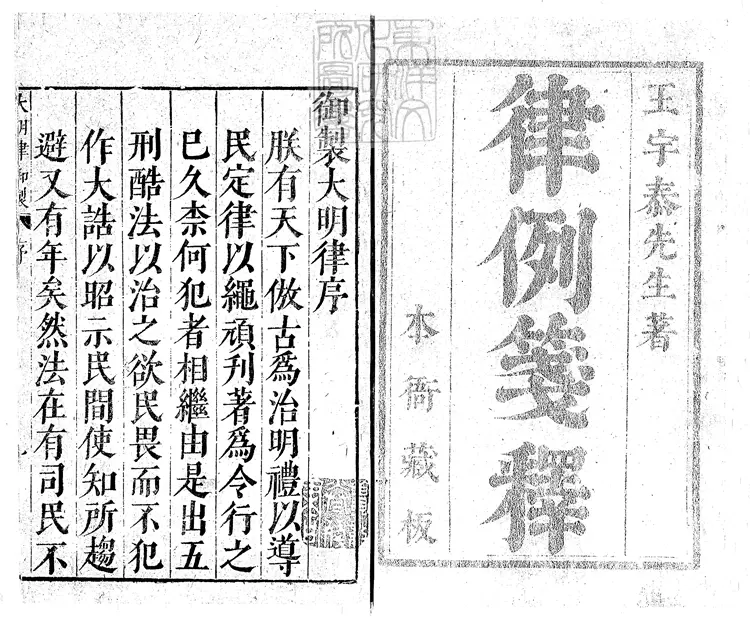 王宇泰先生著
律例箋釋
本衙藏板
御製大明律序
朕有天下倣古爲治明禮以導
民定律以繩頑刋著爲令行之
已久柰何犯者相繼由是出五
刑酷法以治之欲民畏而不犯
作大誥以昭示民間使知所趨
避又有年矣然法在有司民不
大明律御製
序